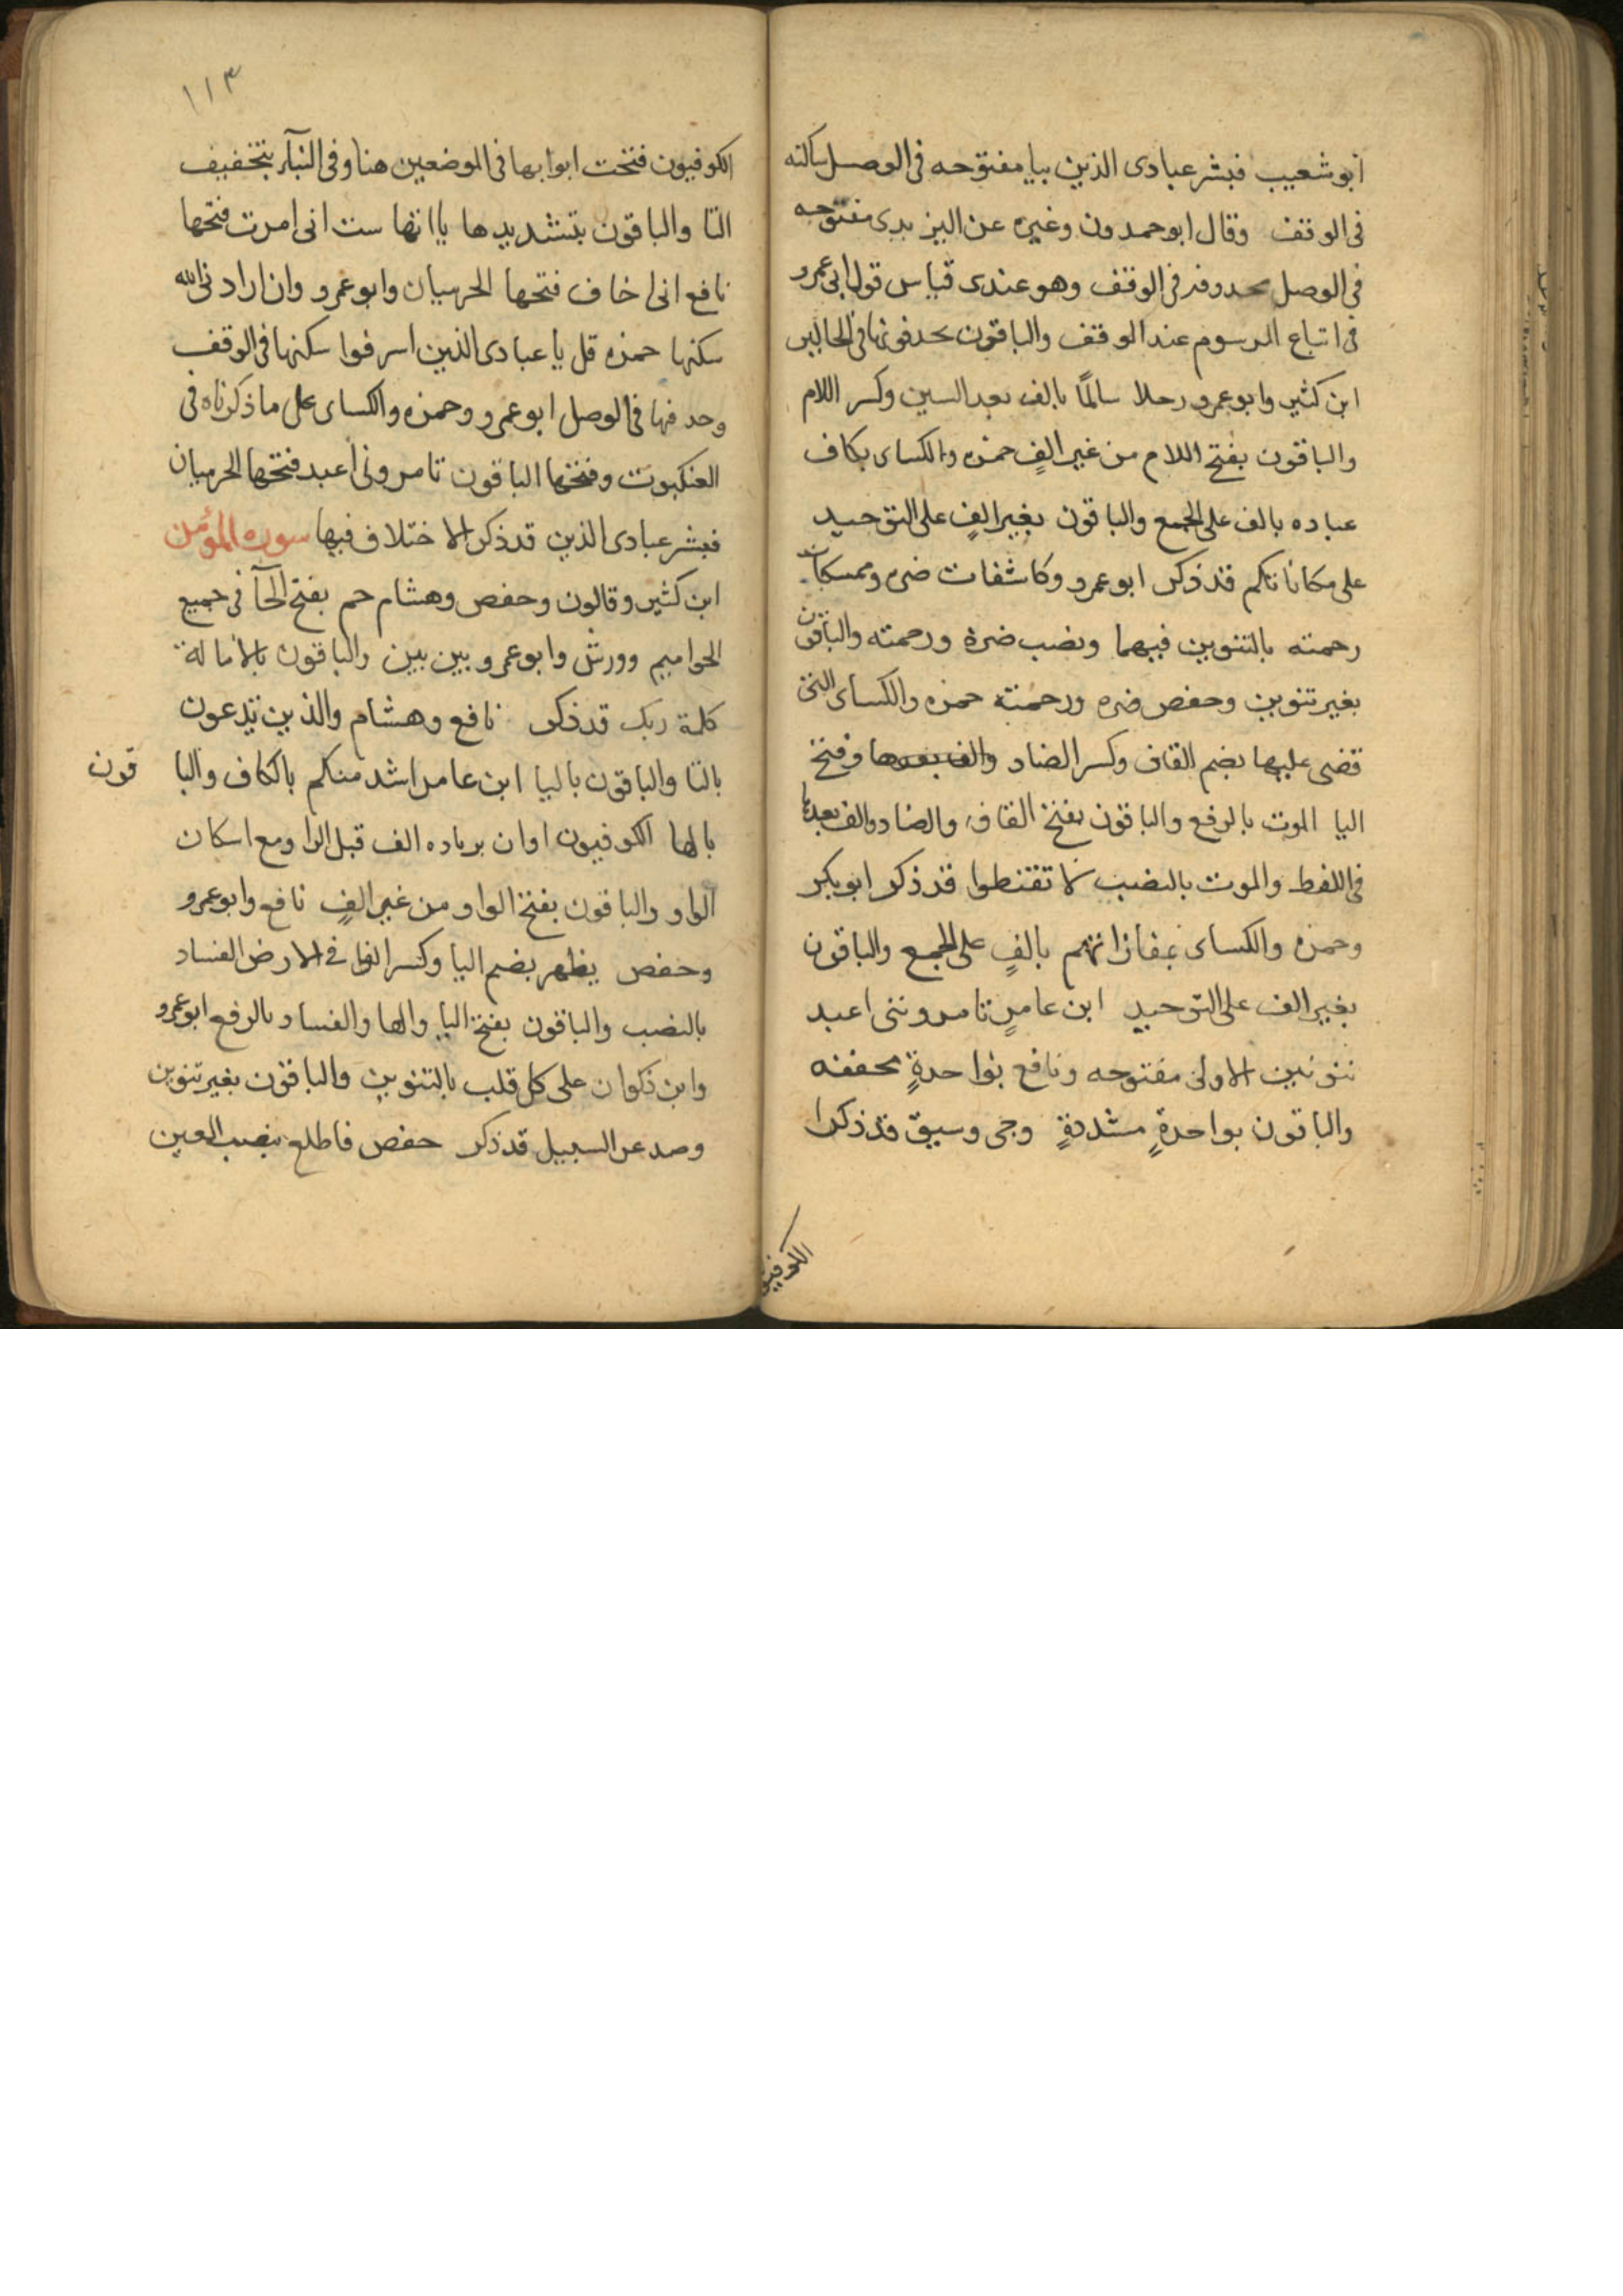 ابو شعيب فبشر عبادى الذين بيا مفتوحه فى الوصل ساكنه
فى الوقف وقال ابو حمدون وغيره عن اليزيدى مفتوحه
فى الوصل محدوفه فى الوقف وهو عندى قياس قول ابى عمرو
فى اتباع المرسوم عند الوقف والباقون يحدفونها فى الحالين
ابن كثير وابو عمرو رحلا سالمًا بالف بعد السين وكسر اللام
والباقون بفتح اللام من غير الفٍ حمزه والكساى بكاف
عباده بالف على الجمع والباقون بغير الفٍ على التوحيد
على مكاناتكم قد ذكر ابو عمرو وكاشفات ضره وممسكات
رحمته بالتنوين فيهما ونصب ضره ورحمته والباقون
بغير تنوين وخفض ضره ورحمته حمزه والكساى التى
قضى عليها بضم القاف وكسر الضاد والف بعدها وفتح
اليا الموت بالرفع والباقون بفتح القاف والضاد والف بعدها
فى اللفظ والموت بالنصب لا تقنطوا قد ذكر ابو بكر
وحمزه والكساى بمفازاتهم بالفٍ على الجمع والباقون
بغير الف على التوحيد ابن عامرٍ تامروننى اعبد
بنونين الاولى مفتوحه ونافع بواحدةٍ مخففه
والباقون بواحدةٍ مشددةٍ وجى وسيق قد ذكرا
الكوفيون
١١٣
الكوفيون فتحت ابوابها فى الموضعين هنا وفى النبأ بتخفيف
التا والباقون بتشديدها ياآتها ست انى امرت فتحها
نافع انى اخاف فتحها الحرميان وابو عمرو وان ارادنى الله
سكنها حمزه قل يا عبادى الذين اسرفوا سكنها فى الوقف
وحدفها فى الوصل ابو عمرو وحمزه والكساى على ما ذكرناه فى
العنكبوت وفتحها الباقون تامرونى اعبد فتحها الحرميان
فبشر عبادى الذين قد ذكر الاختلاف فيها سوره المؤمن
ابن كثير وقالون وحفص وهشام حم بفتح الحآ فى جميع
الحواميم وورش وابو عمرو بين بين والباقون بالامالة
كلمة ربك قد ذكر نافع وهشام والذين تدعون
بالتا والباقون باليا ابن عامر اشد منكم بالكاف والباقون
بالها الكوفيون او ان بزياده الف قبل الواو مع اسكان
الواو والباقون بفتح الواو من غير الفٍ نافع وابو عمرو
وحفص يظهر بضم اليا وكسر الها فى الارض الفساد
بالنصب والباقون بفتح اليا والها والفساد بالرفع ابو عمرو
وابن ذكوان على كل قلب بالتنوين والباقون بغير تنوين
وصد عن السبيل قد ذكر حفص فاطلع بنصب العين